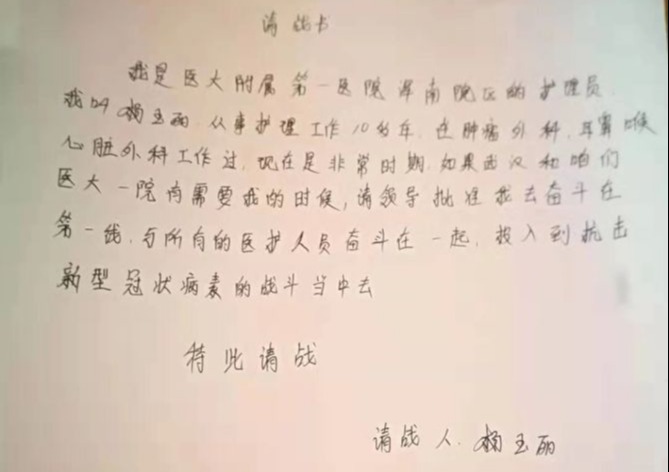 请战书
我是医大附属第一医院浑南院区的护理员.
我叫杨玉丽,从事护理工作10多年,在肿瘤外科,耳鼻喉
心脏外科工作过,现在是非常时期.如果武汉和咱们
医大一院有需要我的时候,请领导批准我去奋斗在
第一线,与所有的医护人员奋斗在一起,投入到抗击
新型冠状病毒的战斗当中去
特此请战
请战人.杨玉丽